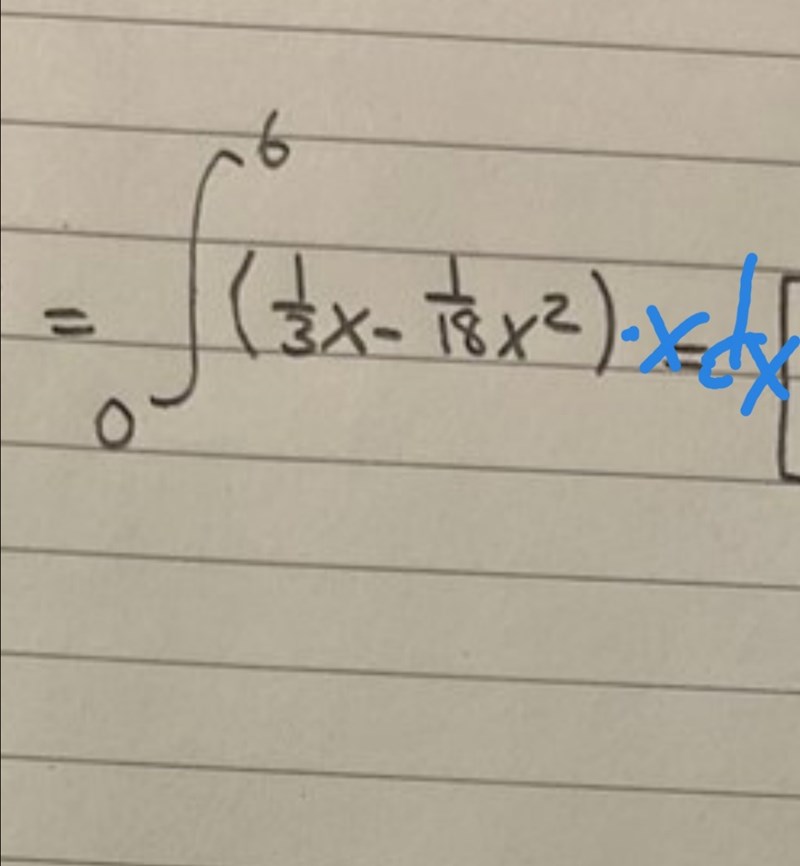 = ∫₀⁶ (1/3 x - 1/18 x²) · x = dx [